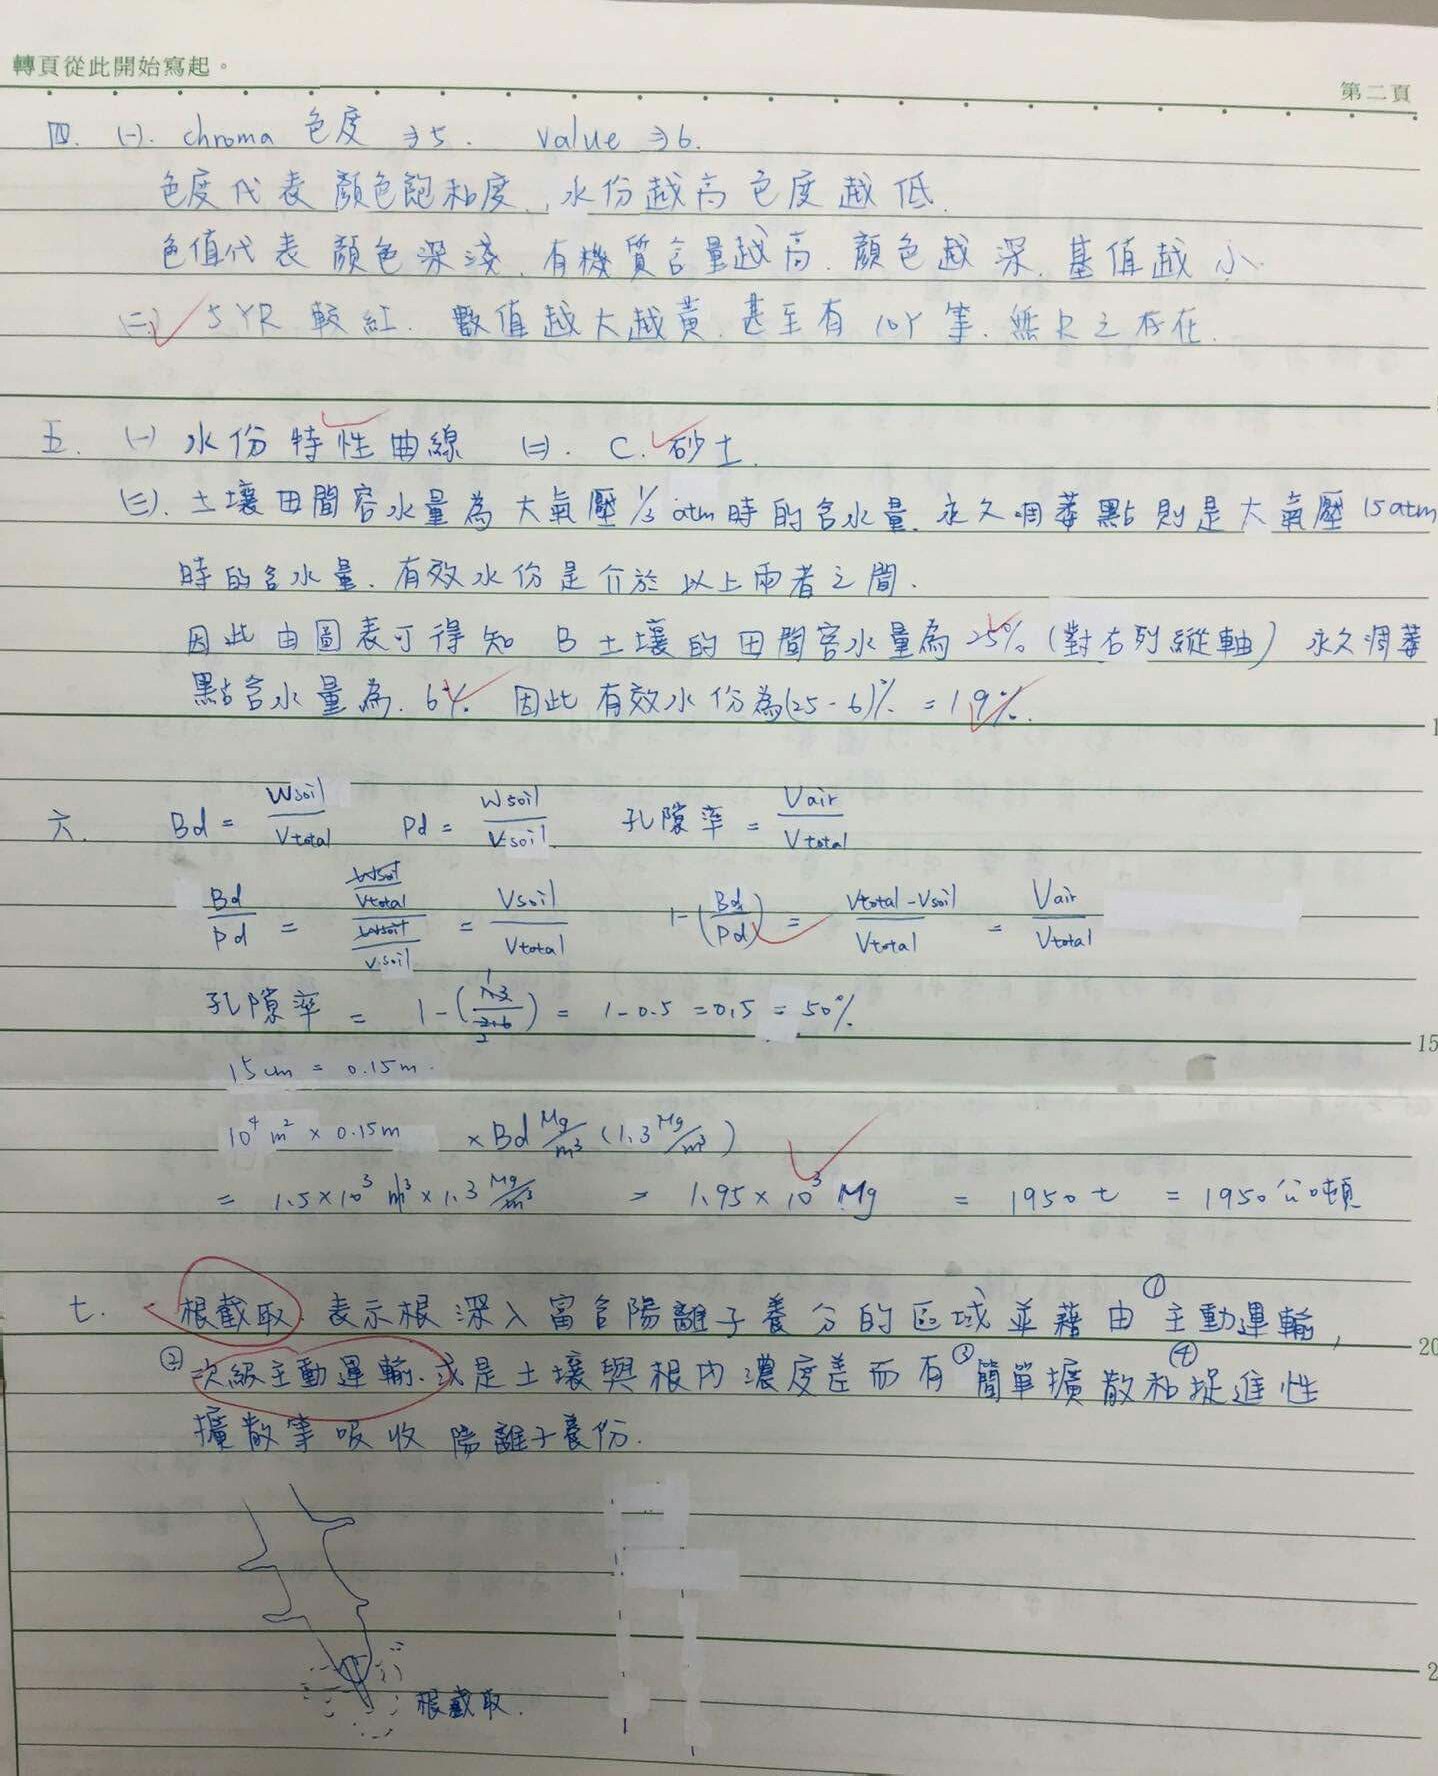 轉頁從此開始寫起。
第二頁
四. (一). chroma 色度 →5. value →6.
色度代表顏色飽和度, 水份越高色度越低.
色值代表顏色深淺, 有機質含量越高, 顏色越深, 基值越小.
(二) 5YR 較紅, 數值越大越黃, 甚至有 10Y 等, 無R之存在.
五. (一) 水份特性曲線 (二). C. 砂土.
(三). 土壤田間容水量為大氣壓 1/3 atm 時的含水量, 永久凋萎點則是大氣壓 15 atm
時的含水量, 有效水份是介於以上兩者之間.
因此由圖表可得知 B 土壤的田間容水量為 25% (對右列縱軸) 永久凋萎
點含水量為 6%. 因此有效水份為(25-6)% = 19%.
六. Bd = Wsoil/Vtotal Pd = Wsoil/Vsoil 孔隙率 = Vair/Vtotal
Bd/Pd = (Wsoil/Vtotal)/(Wsoil/Vsoil) = Vsoil/Vtotal 1-(Bd/Pd) = Vtotal-Vsoil/Vtotal = Vair/Vtotal
孔隙率 = 1-(1.3/2.6) = 1-0.5 = 0.5 = 50%
15cm = 0.15m.
10⁴ m² × 0.15m × Bd Mg/m³ (1.3 Mg/m³)
15
= 1.5×10³ m³ × 1.3 Mg/m³ = 1.95×10³ Mg = 1950 t = 1950 公噸
七. 根截取 表示根深入富含陽離子養分的區域並藉由 ①主動運輸,
20
②次級主動運輸, 或是土壤與根內濃度差而有 ③簡單擴散和 ④促進性
擴散等吸收陽離子養份.
根截取.